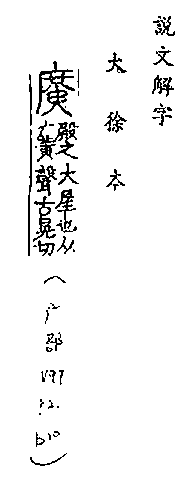 說文解字
大徐本
廣
殿之大屋也从
广黃聲古晃切
(广部
b10)